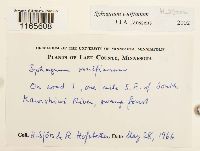 1185608
Sphagnum wulfianum
2002
HERBARIUM OF THE UNIVERSITY OF MINNESOTA, MINNEAPOLIS
PLANTS OF LAKE COUNTY, MINNESOTA
Sphagnum wulfianum
On wood, one mile S.E. of South
Kawishiwi River, swamp forest
Coll. H. Sjörs & R. Hofstetter Date: May 28, 1966